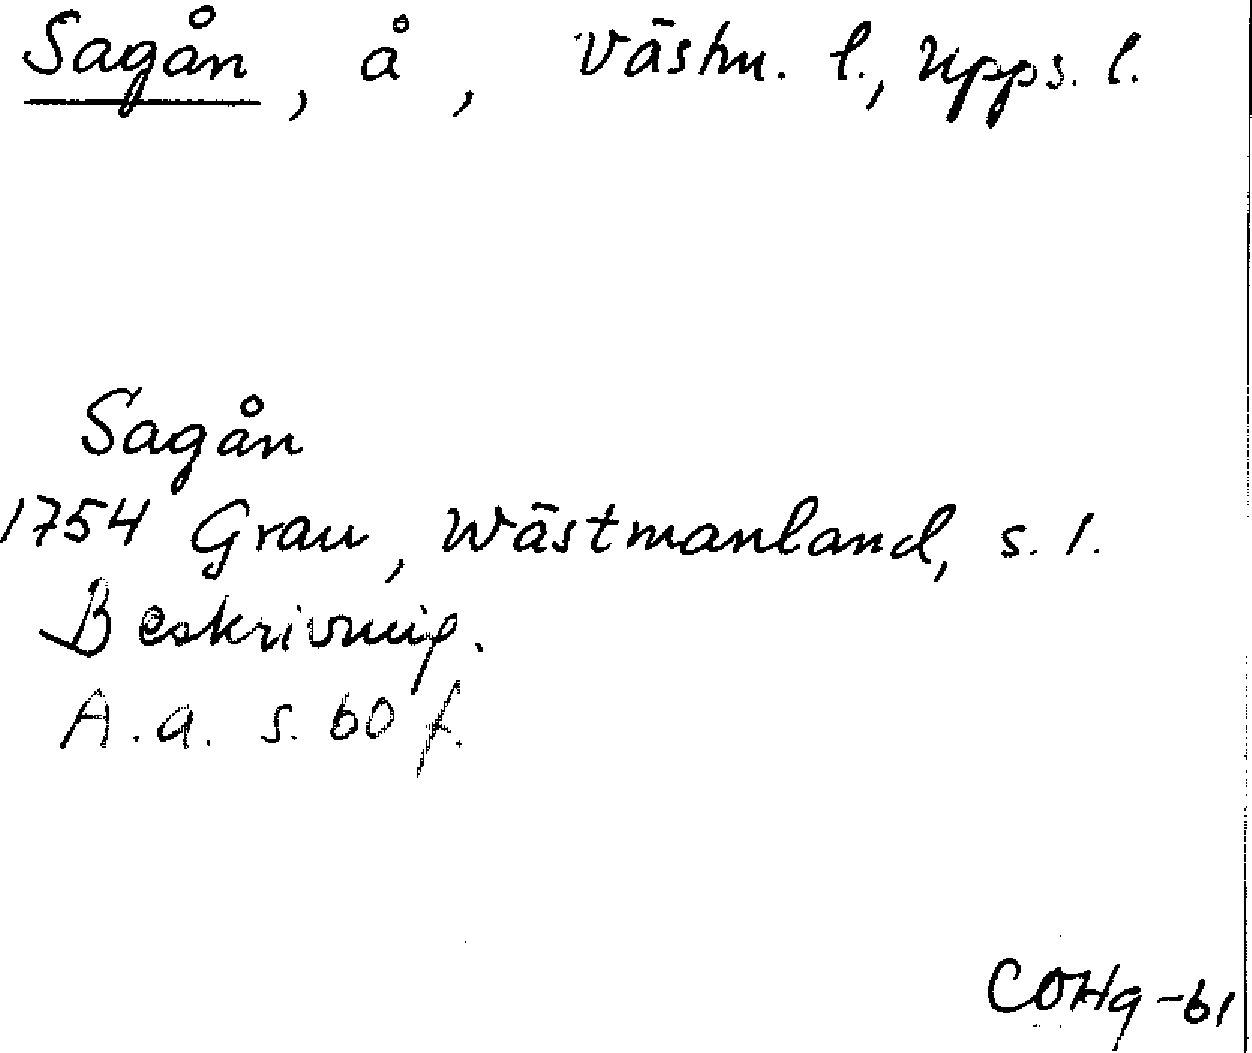 Sagån, å, Västm. l., Upps. l.
Sagån
1754 Grau, Wästmanland, s. 1.
Beskrivning.
A.a. s. 60 f.
COHg-61